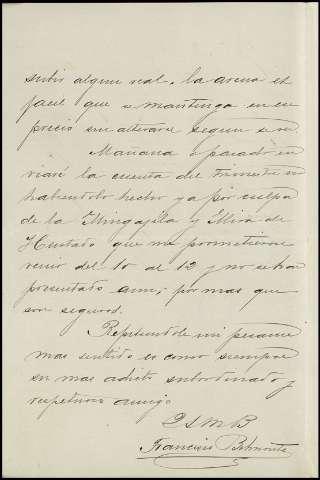 subir algun real, la avena es
facil que se mantenga en su
precio sin alterarse segun se ve.
Mañana o pasado en
viaré la cuenta del trimestre no
habiendolo hecho ya por culpa
de la Mingajila y Mira de
Hurtado que me prometieron
venir del 10 al 12 y no se han
presentado aun, por mas que
son seguros.
Repitiendole mi pesame
mas sentido es como siempre
su mas adicto subordinado y
respetuoso amigo
Q S M B
Francisco Belmonte